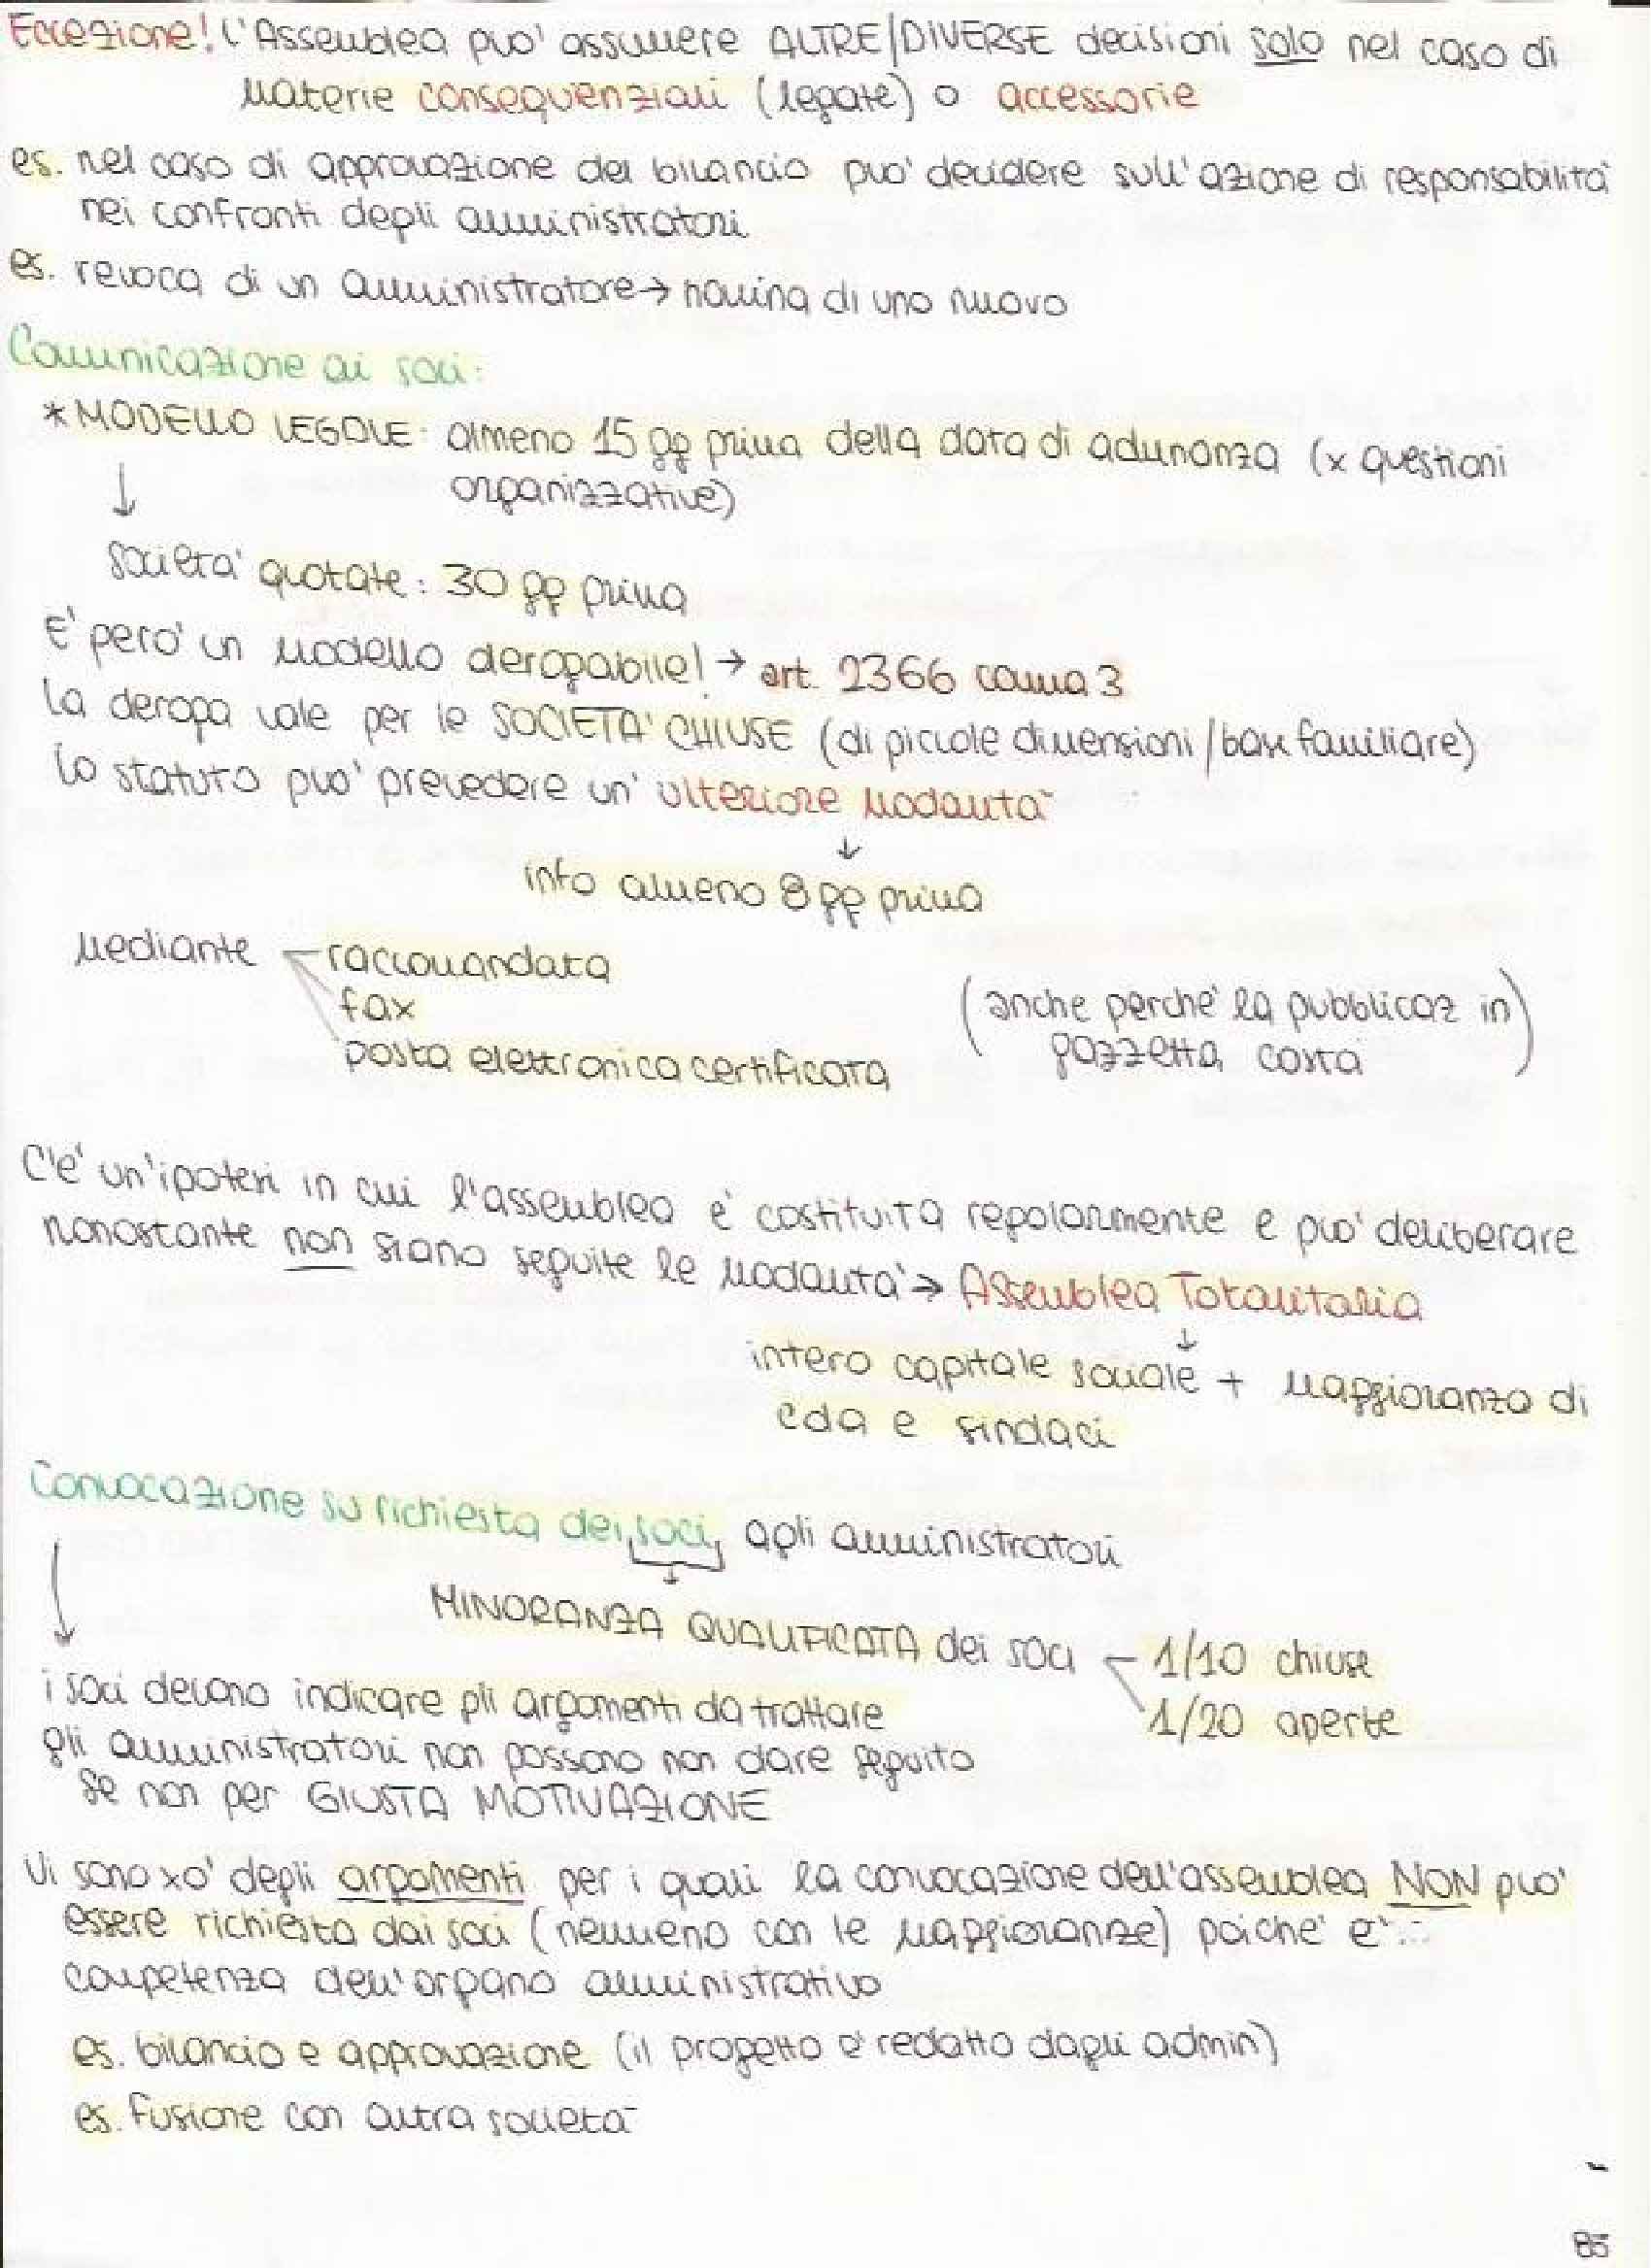 Eccezione! L'Assemblea puo' assumere ALTRE/DIVERSE decisioni solo nel caso di
materie consequenziali (legate) o accessorie
es. nel caso di approvazione del bilancio puo' decidere sull'azione di responsabilità
nei confronti degli amministratori
es. revoca di un amministratore → nomina di uno nuovo
Comunicazione ai soci:
* MODELLO LEGALE: almeno 15 gg prima della data di adunanza (x questioni
organizzative)
↓
società quotate: 30 gg prima
E' pero' un modello derogabile! → art. 2366 comma 3
La deroga vale per le SOCIETA' CHIUSE (di piccole dimensioni/base familiare)
Lo statuto puo' prevedere un'ulteriore modalità
↓
info almeno 8 gg prima
mediante raccomandata
fax
posta elettronica certificata
(anche perche' la pubblicaz in
gazzetta costa)
C'e' un'ipotesi in cui l'assemblea e' costituita regolarmente e puo' deliberare
nonostante non siano seguite le modalita' → Assemblea Totalitaria
↓
intero capitale sociale + maggioranza di
cda e sindaci
Convocazione su richiesta dei soci agli amministratori
↓
MINORANZA QUALIFICATA dei soci 1/10 chiuse
1/20 aperte
i soci devono indicare gli argomenti da trattare
gli amministratori non possono non dare seguito
se non per GIUSTA MOTIVAZIONE
Vi sono xo' degli argomenti per i quali la convocazione dell'assemblea NON puo'
essere richiesta dai soci (nemmeno con le maggioranze) poiche' e'...
competenza dell'organo amministrativo
es. bilancio e approvazione (il progetto e' redatto dagli admin)
es. fusione con altra società
85